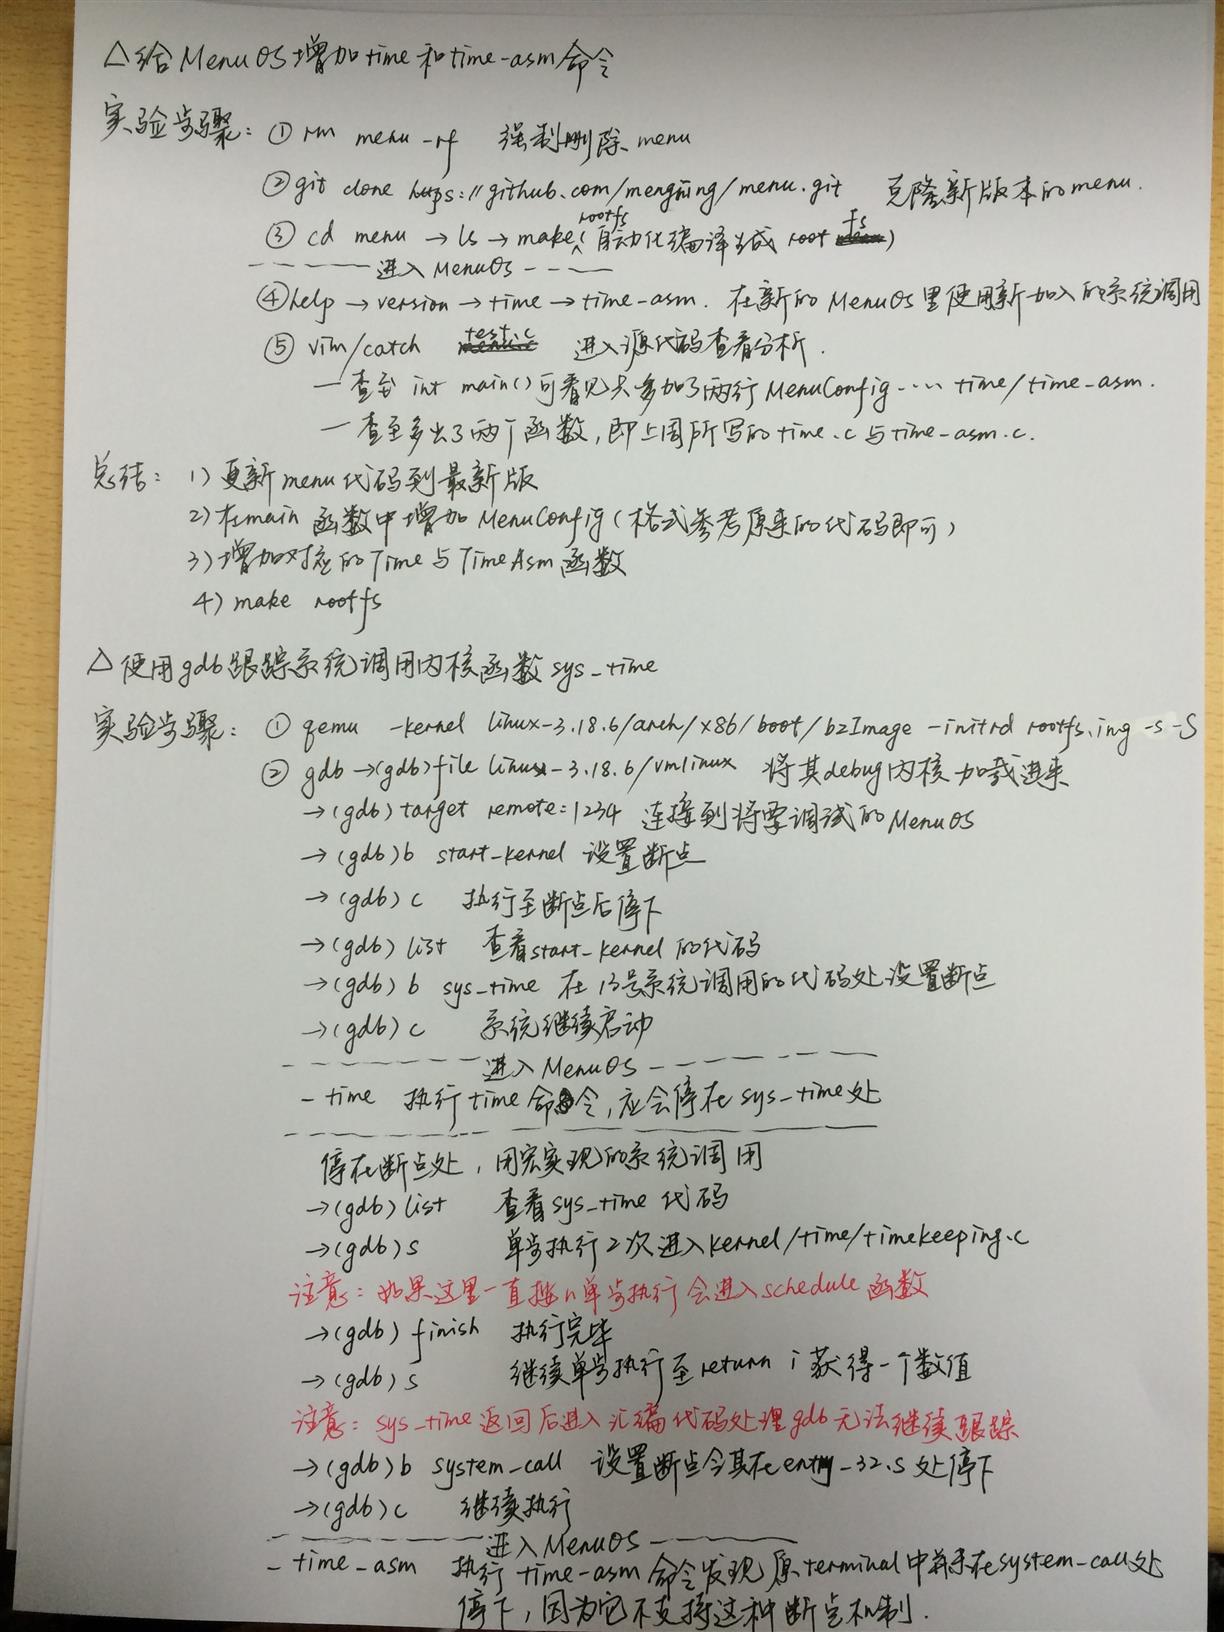 △给MenuOS增加time和time-asm命令
实验步骤：① rm menu -rf 强制删除menu
②git clone https://github.com/mengning/menu.git 克隆新版本的menu.
③ cd menu → ls → make rootfs（自动化编译生成 root fs）
------进入MenuOS----
④help → version → time → time-asm. 在新的MenuOS里使用新加入的系统调用
⑤ vim/catch test.c 进入源代码查看分析.
— 查到 int main()可看见只多加了两行MenuConfig…… time/time-asm.
— 查至多出了两个函数,即上周所写的time.c与time-asm.c.
总结：1) 更新menu代码到最新版
2)在main函数中增加MenuConfig(格式参考原来的代码即可)
3)增加对应的Time与TimeAsm函数
4) make rootfs
△使用gdb跟踪系统调用内核函数sys_time
实验步骤：① qemu -kernel linux-3.18.6/arch/x86/boot/bzImage -initrd rootfs.img -s -S
② gdb→(gdb)file linux-3.18.6/vmlinux 将其debug内核加载进来
→(gdb)target remote:1234 连接到将要调试的MenuOS
→(gdb)b start-kernel 设置断点
→(gdb)c 执行至断点后停下
→(gdb)list 查看start-kernel的代码
→(gdb)b sys_time 在13号系统调用的代码处设置断点
→(gdb)c 系统继续启动
------进入MenuOS------
-time 执行time命令,应会停在sys_time处
停在断点处,用宏实现的系统调用
→(gdb)list 查看sys_time代码
→(gdb)s 单步执行2次进入kernel/time/timekeeping.c
注意：如果这里一直按n单步执行会进入schedule函数
→(gdb)finish 执行完毕
→(gdb)s 继续单步执行至return i 获得一个数值
注意：sys_time返回后进入汇编代码处理gdb无法继续跟踪
→(gdb)b system_call 设置断点令其在entry_32.S处停下
→(gdb)c 继续执行
------进入MenuOS------
-time_asm 执行time-asm命令发现原terminal中并未在system-call处
停下,因为它不支持这种断点机制.